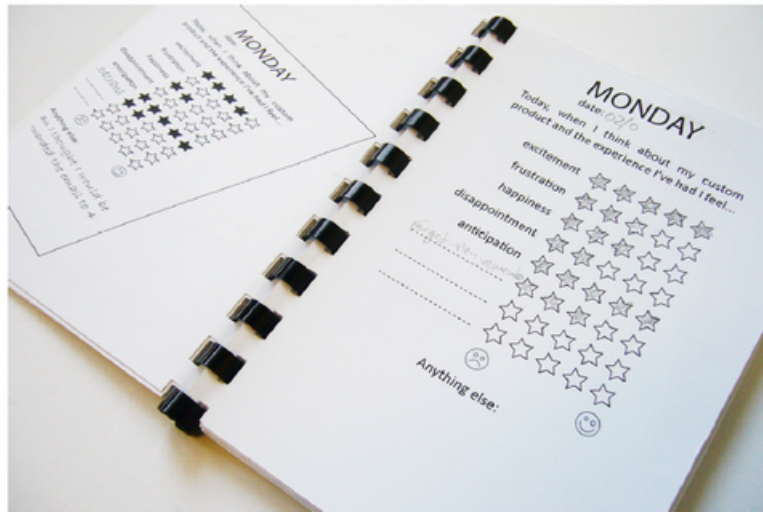 MONDAY
date:
Today, when I think about my custom
product and the experience I've had I feel...
excitement
frustration
happiness
disappointment
anticipation
Anything else:
MONDAY
date:
Today, when I think about my custom
product and the experience I've had I feel...
excitement
frustration
happiness
disappointment
anticipation
Anything else: